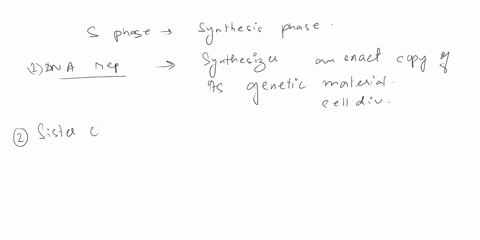 S phase → Synthesis phase.
1) DNA rep → Synthesizes an exact copy of
its genetic material.
cell div.
② Sister c